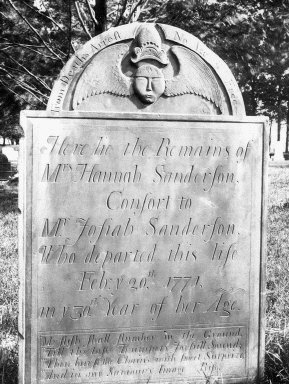 From Death's Arrest No
Here lie the Remains of
Mrs Hannah Sanderson,
Consort to
Mr Josiah Sanderson,
Who departed this life
Febry 20th 1774,
in ye 70th Year of her Age.
My flesh shall slumber in the Ground,
Till the last Trumpets Joyfull Sound,
Then burst the Chains with sweet Surprize
And in my Saviours Image Rise.